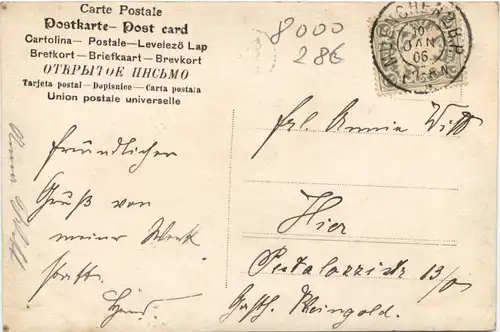 Carte Postale
Postkarte – Post card
Cartolina – Postale – Levelező Lap
Bretkort – Briefkaart – Brevkort
ОТКРЫТОЕ ПИСЬМО
Tarjeta postal – Dopisnice – Carta postala
Union postale universelle
8000
286
MUENCHEN
10
JAN
06
Freundlicher
Gruß von
meiner Werk
statt.
Frl. Annie Witt
Hier
Pestalozzistr 13/0
Gasth. Rheingold.